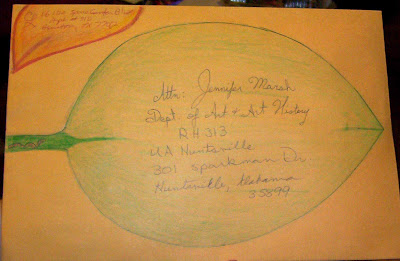 Apt # 711
Houston, TX
Attn: Jennifer Marsh
Dept. of Art + Art History
RH 313
UA Huntsville
301 Sparkman Dr
Huntsville, Alabama
35899